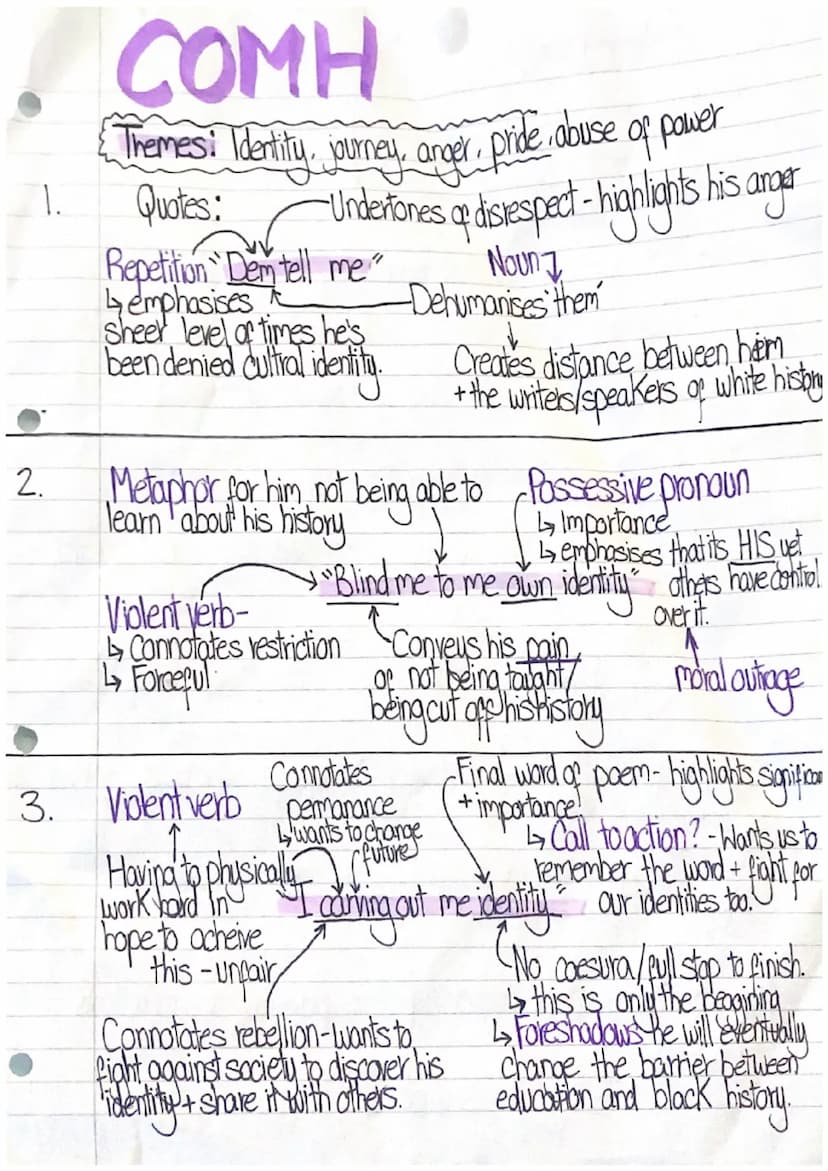 COMH
Themes: Identity, journey, anger, pride, abuse of power
1.
Quotes:
Undertones of disrespect - highlights his anger
Repetition "Dem tell me"
↳ emphasises
sheer level of times he's
been denied cultral identity.
Noun
Dehumanises 'them'
Creates distance between him
+ the writers/speakers of white history
2.
Metaphor for him not being able to
learn about his history
Possessive pronoun
↳ Importance
↳ emphasises that its HIS yet
others have control
over it.
moral outrage
"Blind me to me own identity"
Violent verb-
↳ Connotates restriction
↳ Forceful
Conveys his pain
of not being taught/
being cut off his history
3.
Violent verb
Having to physically
work hard in
hope to acheive
this - unfair
Connotates
permanance
↳ wants to change
future
Final word of poem - highlights
+ importance!
↳ Call to action? - Wants us to
remember the word + fight for
our identities too.
"I carving out me identity"
Connotates rebellion - wants to
fight against society to discover his
identity + share it with others.
No coesura/full stop to finish.
↳ this is only the beggining
↳ Foreshadows he will eventually
change the barrier between
education and black history.